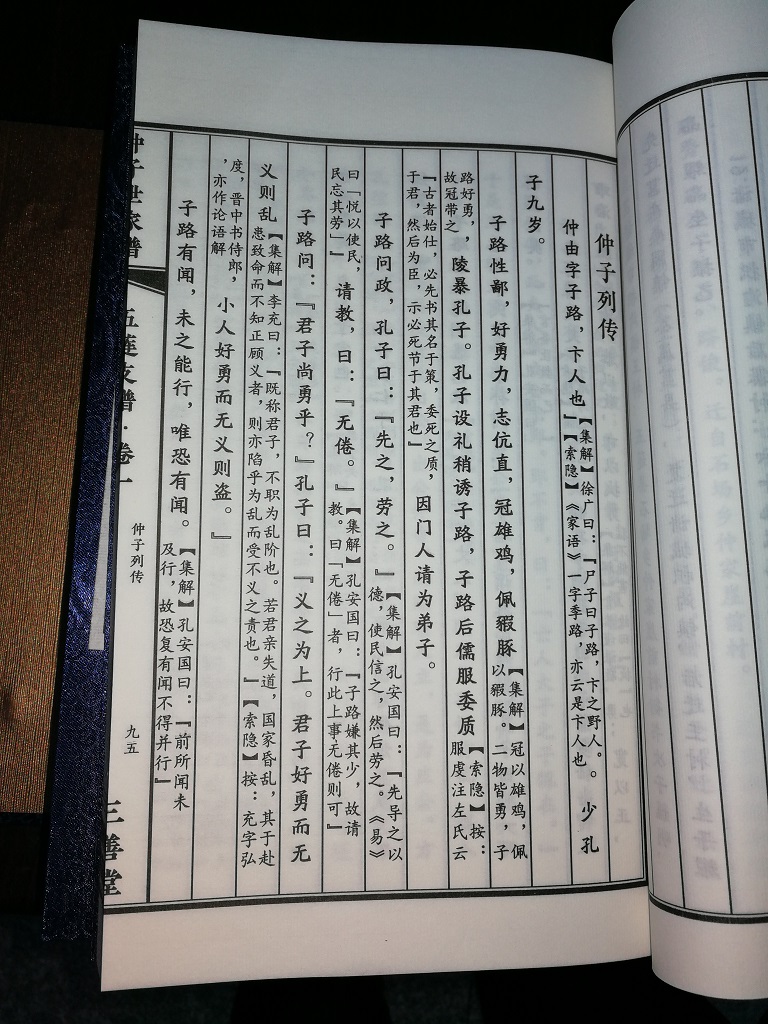 仲子列传
仲由字子路，卞人也」【集解】徐广曰：『尸子曰子路，卞之野人。【索隐】《家语》一字季路，亦云是卞人也。少孔
子九岁。
子路性鄙，好勇力，志伉直，冠雄鸡，佩豭豚【集解】冠以雄鸡，佩以豭豚。二物皆勇，子
路好勇，故冠带之，陵暴孔子。孔子设礼稍诱子路，子路后儒服委质【索隐】按：服虔注左氏云
『古者始仕，必先书其名于策，委死之质，于君，然后为臣，示必死节于其君也』因门人请为弟子。
子路问政，孔子曰：『先之，劳之。』【集解】孔安国曰：『先导之以德，使民信之，然后劳之。《易》
曰「悦以使民，民忘其劳」』请教，曰：『无倦。』【集解】孔安国曰：『子路嫌其少，故请教。曰「无倦」者，行此上事无倦则可』
子路问：『君子尚勇乎？』孔子曰：『义之为上。君子好勇而无
义则乱【集解】李充曰：『既称君子，不职为乱阶也。若君亲失道，国家昏乱，其于赴患致命而不知正顾义者，则亦陷乎为乱而受不义之责也。』【索隐】按：充字弘
度，晋中书侍郎，亦作论语解，小人好勇而无义则盗。』
子路有闻，未之能行，唯恐有闻。【集解】孔安国曰：『前所闻未及行，故恐复有闻不得并行』
仲子世家谱
五莲支谱·卷一
仲子列传
九五
三善堂